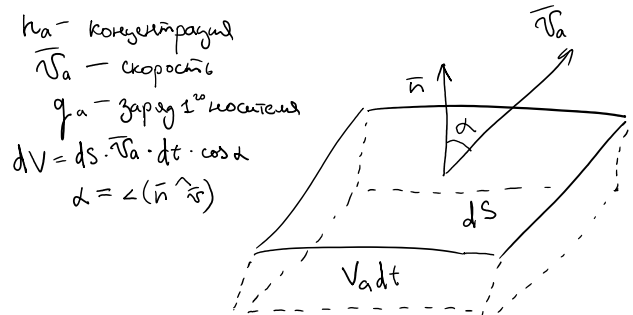 n_a — концентрация
v̅_a — скорость
q_a — заряд 1²⁰ носителя
dV = dS · v̅_a · dt · cosα
α = ∠(n̅ ^ v̅)
n̅
v̅_a
α
dS
V_a dt